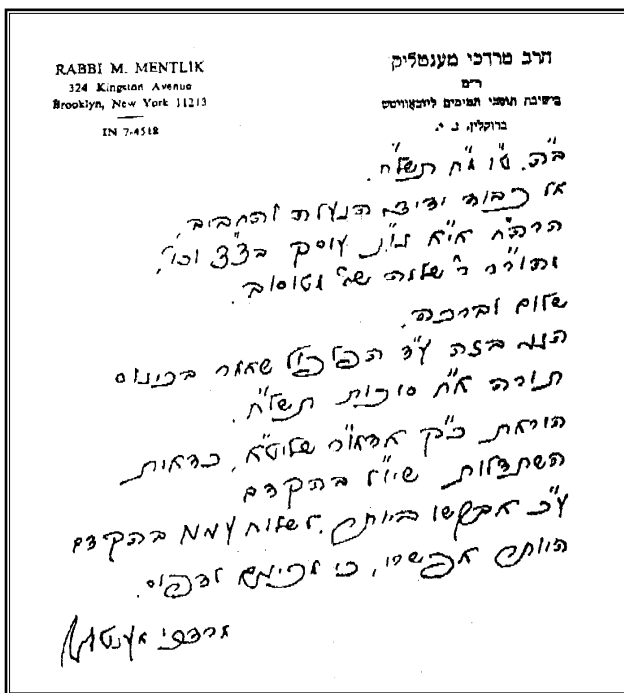 RABBI M. MENTLIK
324 Kingston Avenue
Brooklyn, New York 11213
IN 7-4518
הרב מרדכי מענטליק
ר״מ
בישיבת תומכי תמימים ליובאוויטש
ברוקלין, נ. י.
ב״ה. ט״ו מ״ח תשל״ח.
אל כבוד ידיד הנעלה והחביב,
הרה״ח אי״א נו״נ עוסק בצ״צ וכו׳,
והו״ר ר׳ שלמה שי׳
שלום וברכה.
הנני בזה ע״ד הפלפול שאמר בכינוס
תורה א״ח סוכות תשל״ח.
הוראת כ״ק אדמו״ר שליט״א, כדאות
השתדלות שי״ל בהקדם
ע״כ אבקשו ביותר לשלוח בהקדם
היותר אפשרי, כי לדפוס.
מרדכי מענטליק